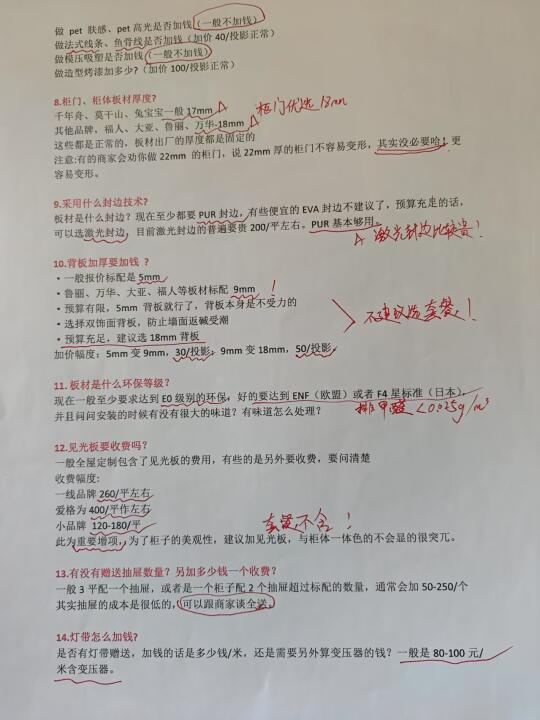 做 pet 肤感、pet 高光是否加钱（一般不加钱）
做法式线条、鱼骨线是否加钱（加价 40/投影正常）
做模压吸塑是否加钱（一般不加钱）
做造型烤漆加多少?（加价 100/投影正常）
8.柜门、柜体板材厚度?
千年舟、莫干山、兔宝宝一般 17mm
柜门优选 18mm
其他品牌，福人、大亚、鲁丽、万华-18mm
这些都是正常的，板材出厂的厚度都是固定的
注意:有的商家会劝你做 22mm 的柜门，说 22mm 厚的柜门不容易变形，其实没必要哈！更
容易变形。
9.采用什么封边技术?
板材是什么封边? 现在至少都要 PUR 封边，有些便宜的 EVA 封边不建议了，预算充足的话，
可以选激光封边，目前激光封边的普遍要贵 200/平左右。PUR 基本够用。
激光封边比较贵！
10.背板加厚要加钱 ？
·一般报价标配是 5mm
·鲁丽、万华、大亚、福人等板材标配 9mm
！
·预算有限，5mm 背板就行了，背板本身是不受力的
不建议选套餐！
·选择双饰面背板，防止墙面返碱受潮
·预算充足，建议选 18mm 背板
加价幅度：5mm 变 9mm，30/投影，9mm 变 18mm，50/投影，
11. 板材是什么环保等级?
现在一般至少要求达到 E0 级别的环保，好的要达到 ENF（欧盟）或者 F4 星标准（日本），
并且问问安装的时候有没有很大的味道？有味道怎么处理?
甲醛<0.025g/m³
12.见光板要收费吗?
一般全屋定制包含了见光板的费用，有些的是另外要收费，要问清楚
收费幅度:
一线品牌 260/平左右
爱格为 400/平作左右
小品牌 120-180/平
套餐不含！
此为重要增项，为了柜子的美观性，建议加见光板，与柜体一体色的不会显的很突兀。
13.有没有赠送抽屉数量？另加多少钱一个收费?
一般 3 平配一个抽屉，或者是一个柜子配 2 个抽屉超过标配的数量，通常会加 50-250/个
其实抽屉的成本是很低的，可以跟商家谈全送。
14.灯带怎么加钱?
是否有灯带赠送，加钱的话是多少钱/米，还是需要另外算变压器的钱？一般是 80-100 元/
米含变压器。